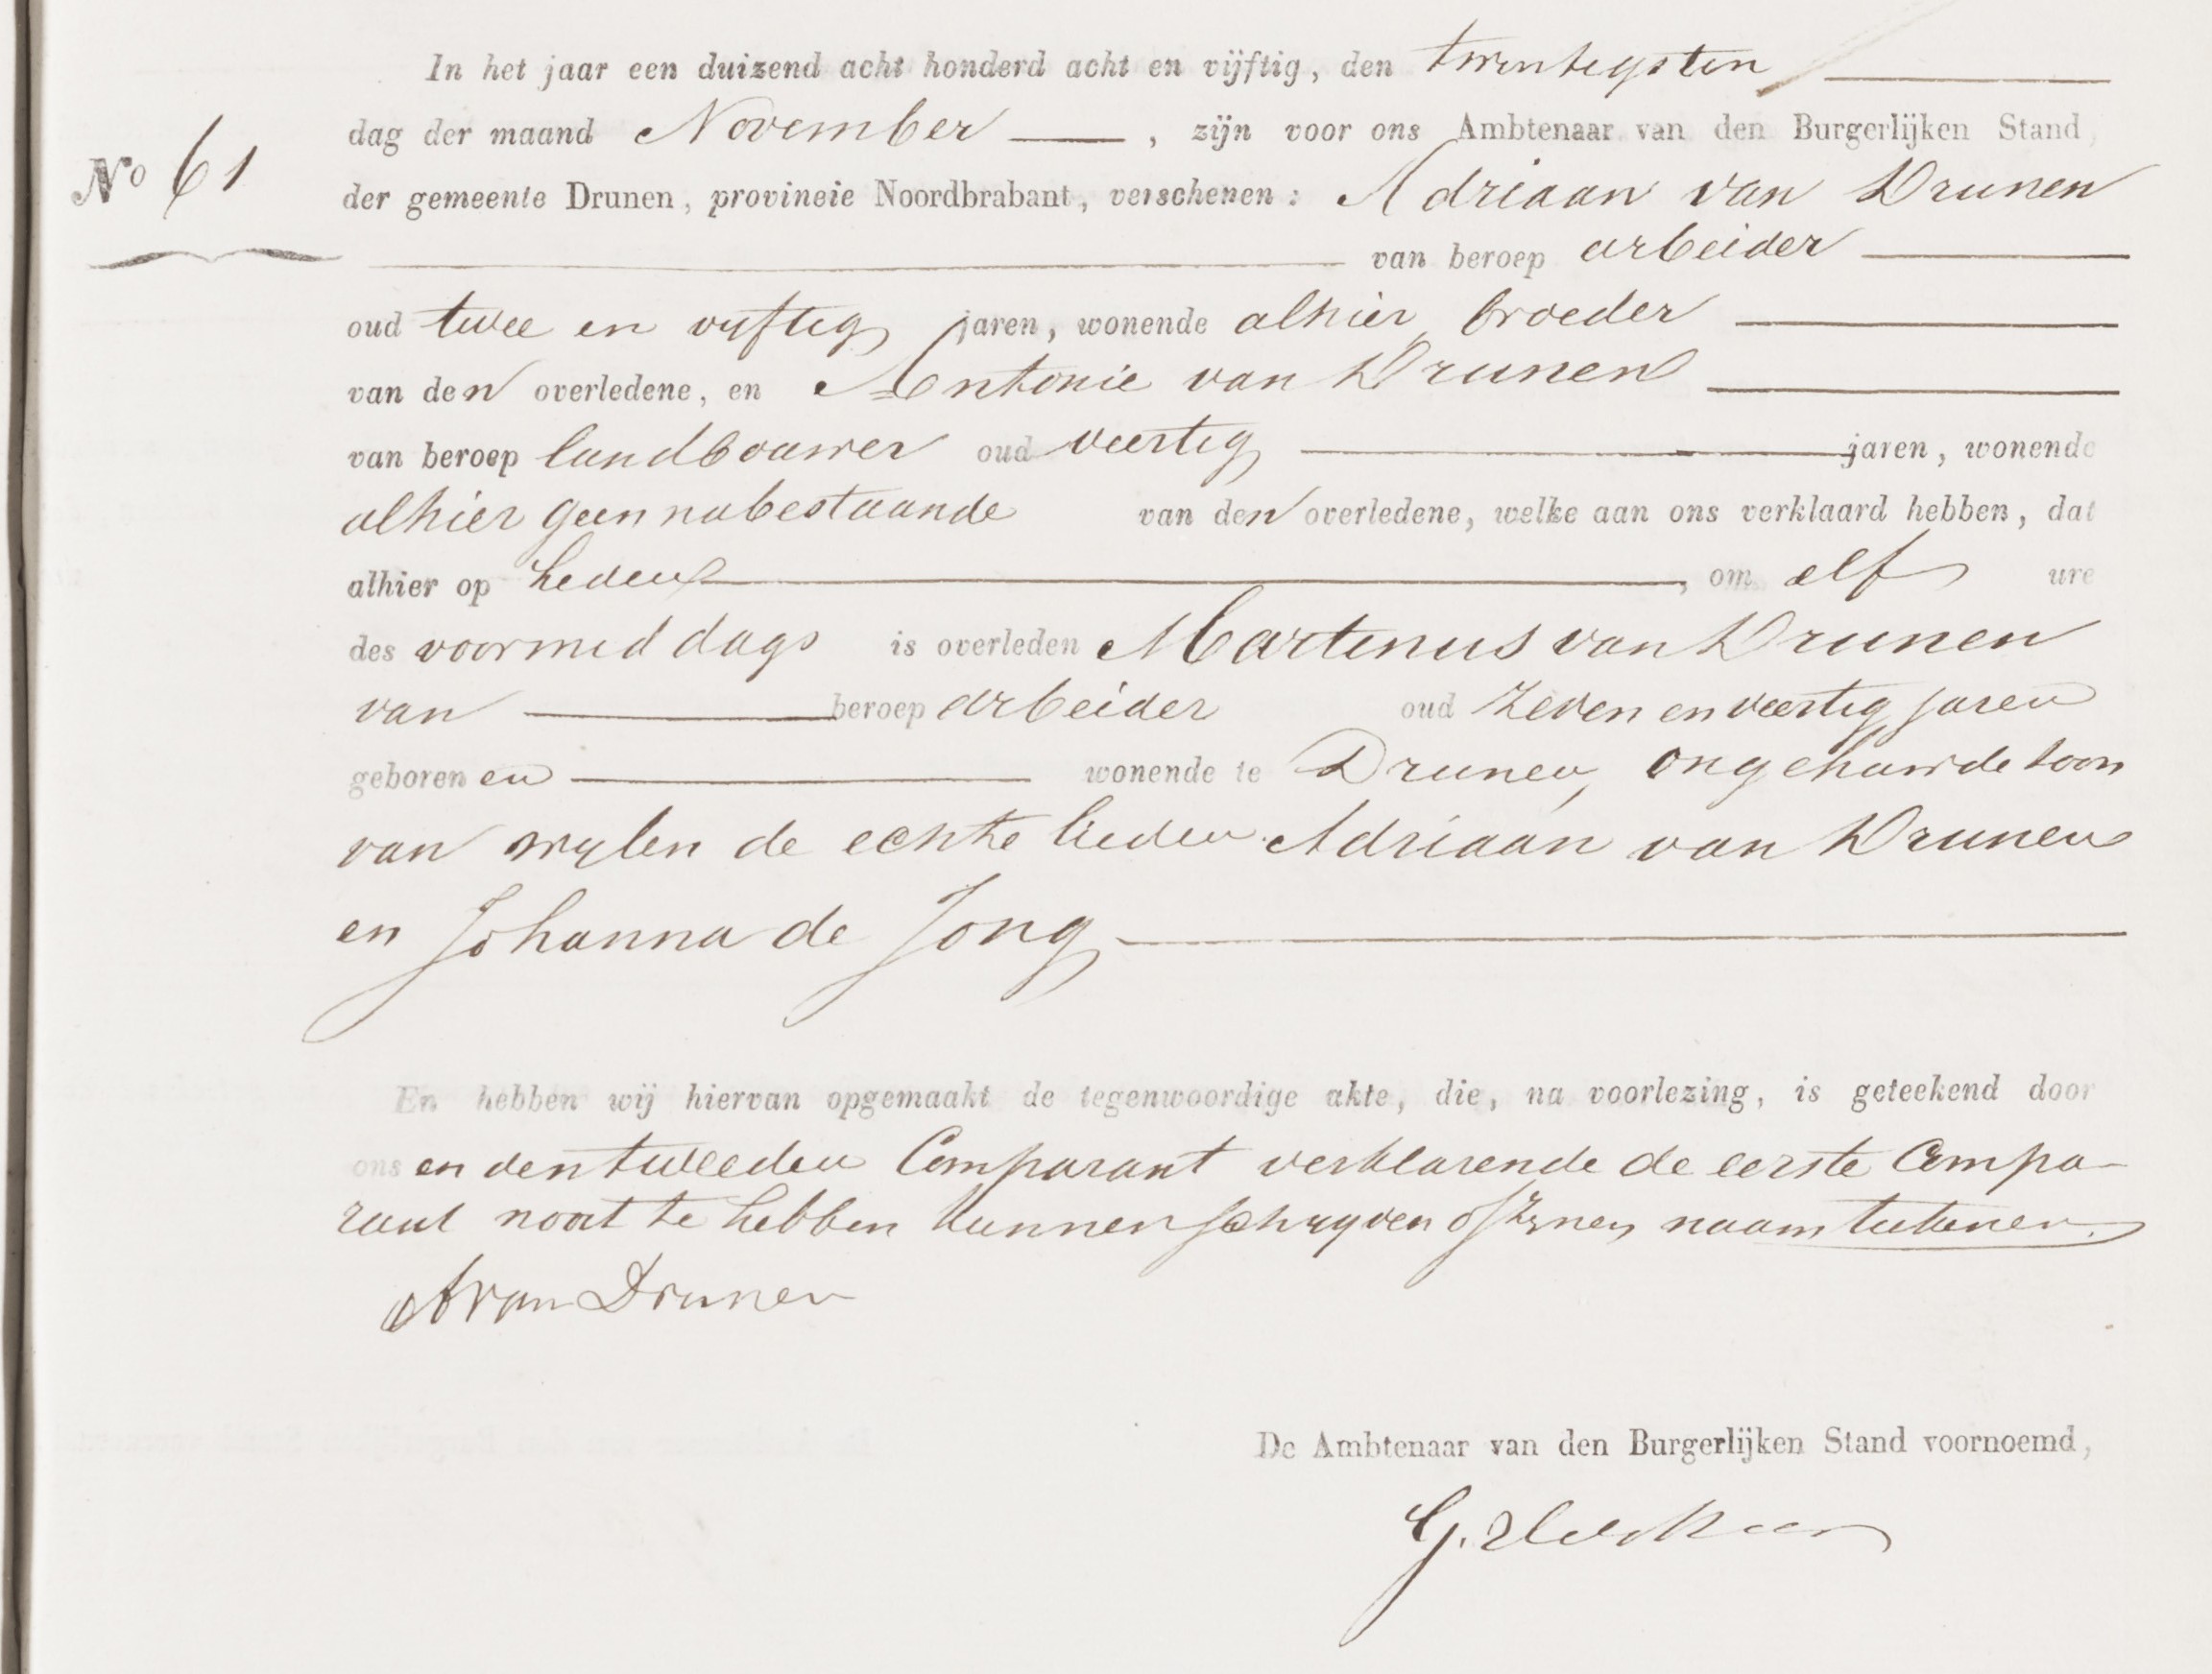 In het jaar een duizend acht honderd acht en vijftig, den twintigsten
dag der maand November, zijn voor ons Ambtenaar van den Burgerlijken Stand
No 61
der gemeente Drunen, provincie Noordbrabant, verschenen: Adriaan van Drunen
van beroep arbeider
oud twee en vyftig jaren, wonende alhier, broeder
van den overledene, en Antonie van Drunen
van beroep landbouwer oud veertig jaren, wonende
alhier geen nabestaande van den overledene, welke aan ons verklaard hebben, dat
alhier op heden, om elf ure
des voormiddags is overleden Martinus van Drunen
van beroep arbeider oud zeven en veertig jaren
geboren en wonende te Drunen, ongehuwde zoon
van wylen de echte lieden Adriaan van Drunen
en Johanna de Jong
En hebben wij hiervan opgemaakt de tegenwoordige akte, die, na voorlezing, is geteekend door
ons en den tweeden Comparant verklarende de eerste Compa-
rant nooit te hebben kunnen schryven of zynen naam teekenen.
A van Drunen
De Ambtenaar van den Burgerlijken Stand voornoemd,
G.